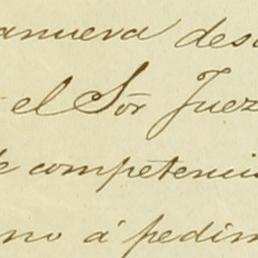 anueva des
el Sor Juez
de competenci
no á pedim